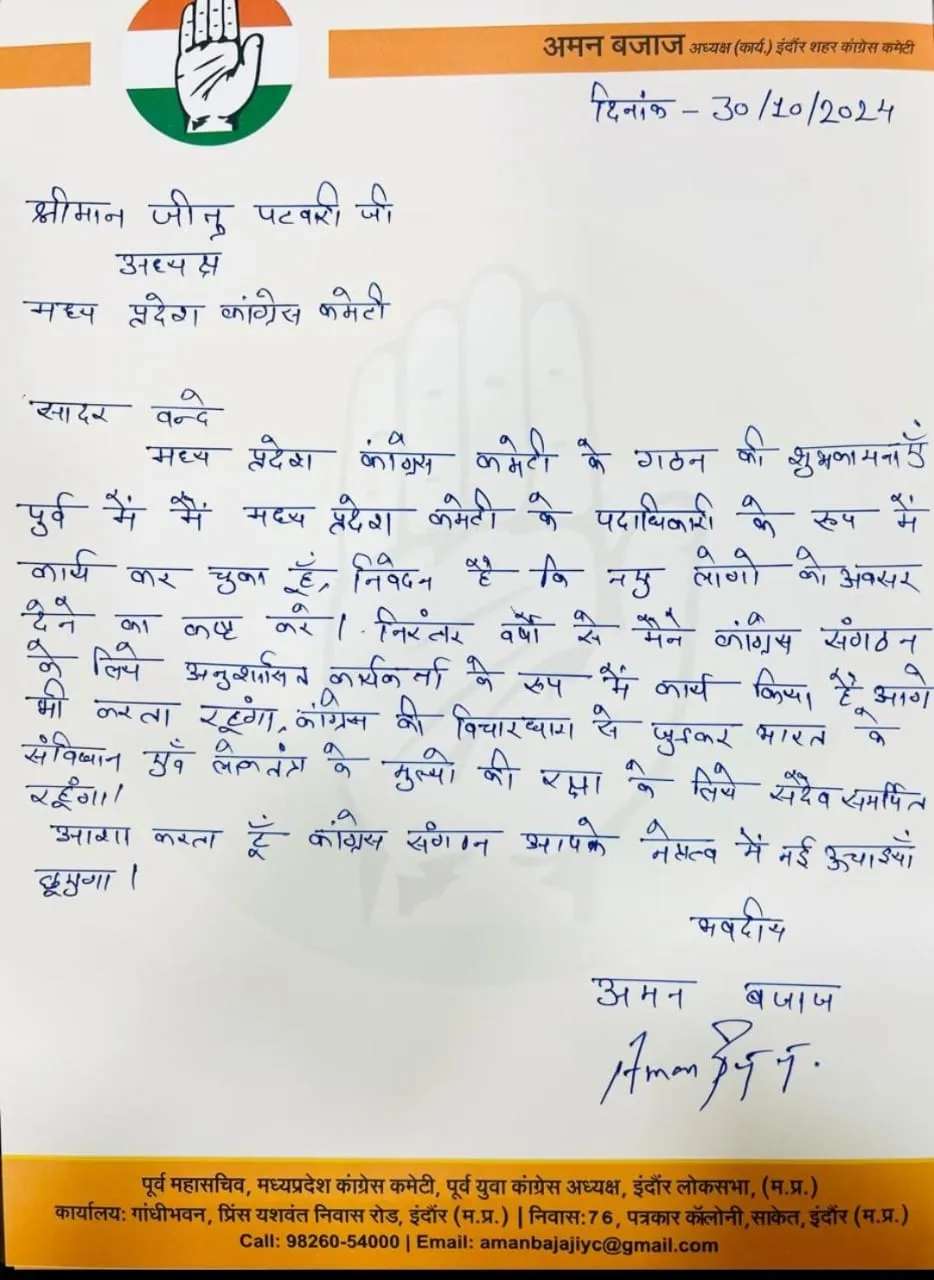 अमन बजाज अध्यक्ष (कार्य.) इंदौर शहर कांग्रेस कमेटी
दिनांक - 30/10/2024
श्रीमान जीतु पटवारी जी
अध्यक्ष
मध्य प्रदेश कांग्रेस कमेटी
सादर वन्दे
मध्य प्रदेश कांग्रेस कमेटी के गठन की शुभकामनाएँ
पुर्व में मैं मध्य प्रदेश कमेटी के पदाधिकारी के रूप में
कार्य कर चुका हूँ, निवेदन है कि नए लोगो को अवसर
देने का कष्ट करे। निरंतर वर्षो से मैने कांग्रेस संगठन
के लिये अनुशासित कार्यकर्ता के रूप में कार्य किया है, आगे
भी करता रहूंगा, कांग्रेस की विचारधारा से जुड़कर भारत के
संविधान एवँ लोकतंत्र के मुल्यो की रक्षा के लिये सदैव समर्पित
रहूँगा।
आशा करता हूँ कांग्रेस संगठन आपके नेतृत्व में नई ऊचाइयाँ
छूएगा।
भवदीय
अमन बजाज
Aman
पूर्व महासचिव, मध्यप्रदेश कांग्रेस कमेटी, पूर्व युवा कांग्रेस अध्यक्ष, इन्दौर लोकसभा, (म.प्र.)
कार्यालय: गांधीभवन, प्रिंस यशवंत निवास रोड, इंदौर (म.प्र.) | निवास:76, पत्रकार कॉलोनी,साकेत, इंदौर (म.प्र.)
Call: 98260-54000 | Email: amanbajajiyc@gmail.com